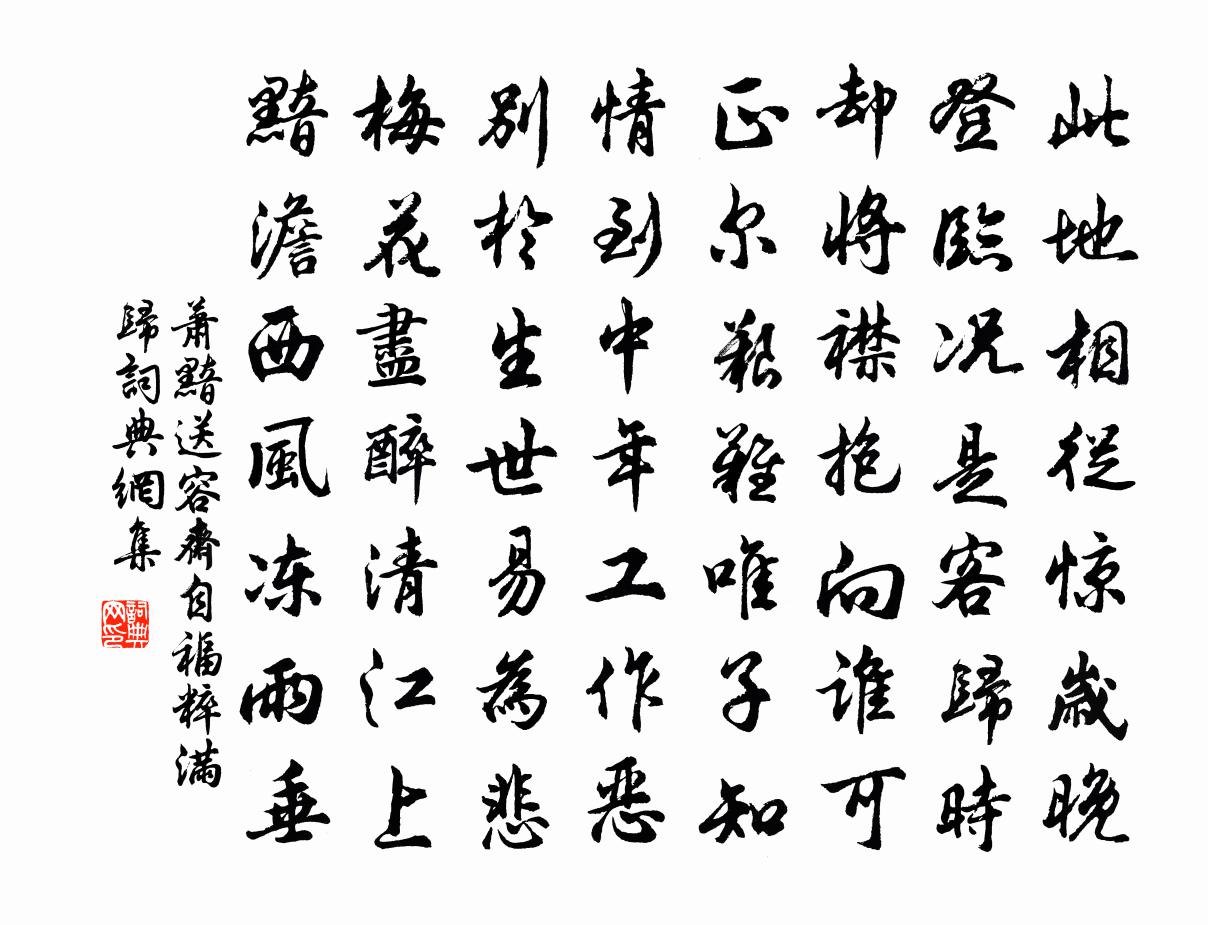 此地相從惊歲晚
登臨况是客歸時
却將襟抱向誰可
正尔艱難唯子知
情到中年工作惡
別於生世易為悲
梅花盡醉清江上
黯澹西風冻雨垂
蕭黯送容齋自福粹满
歸詞典網集
詞典网印